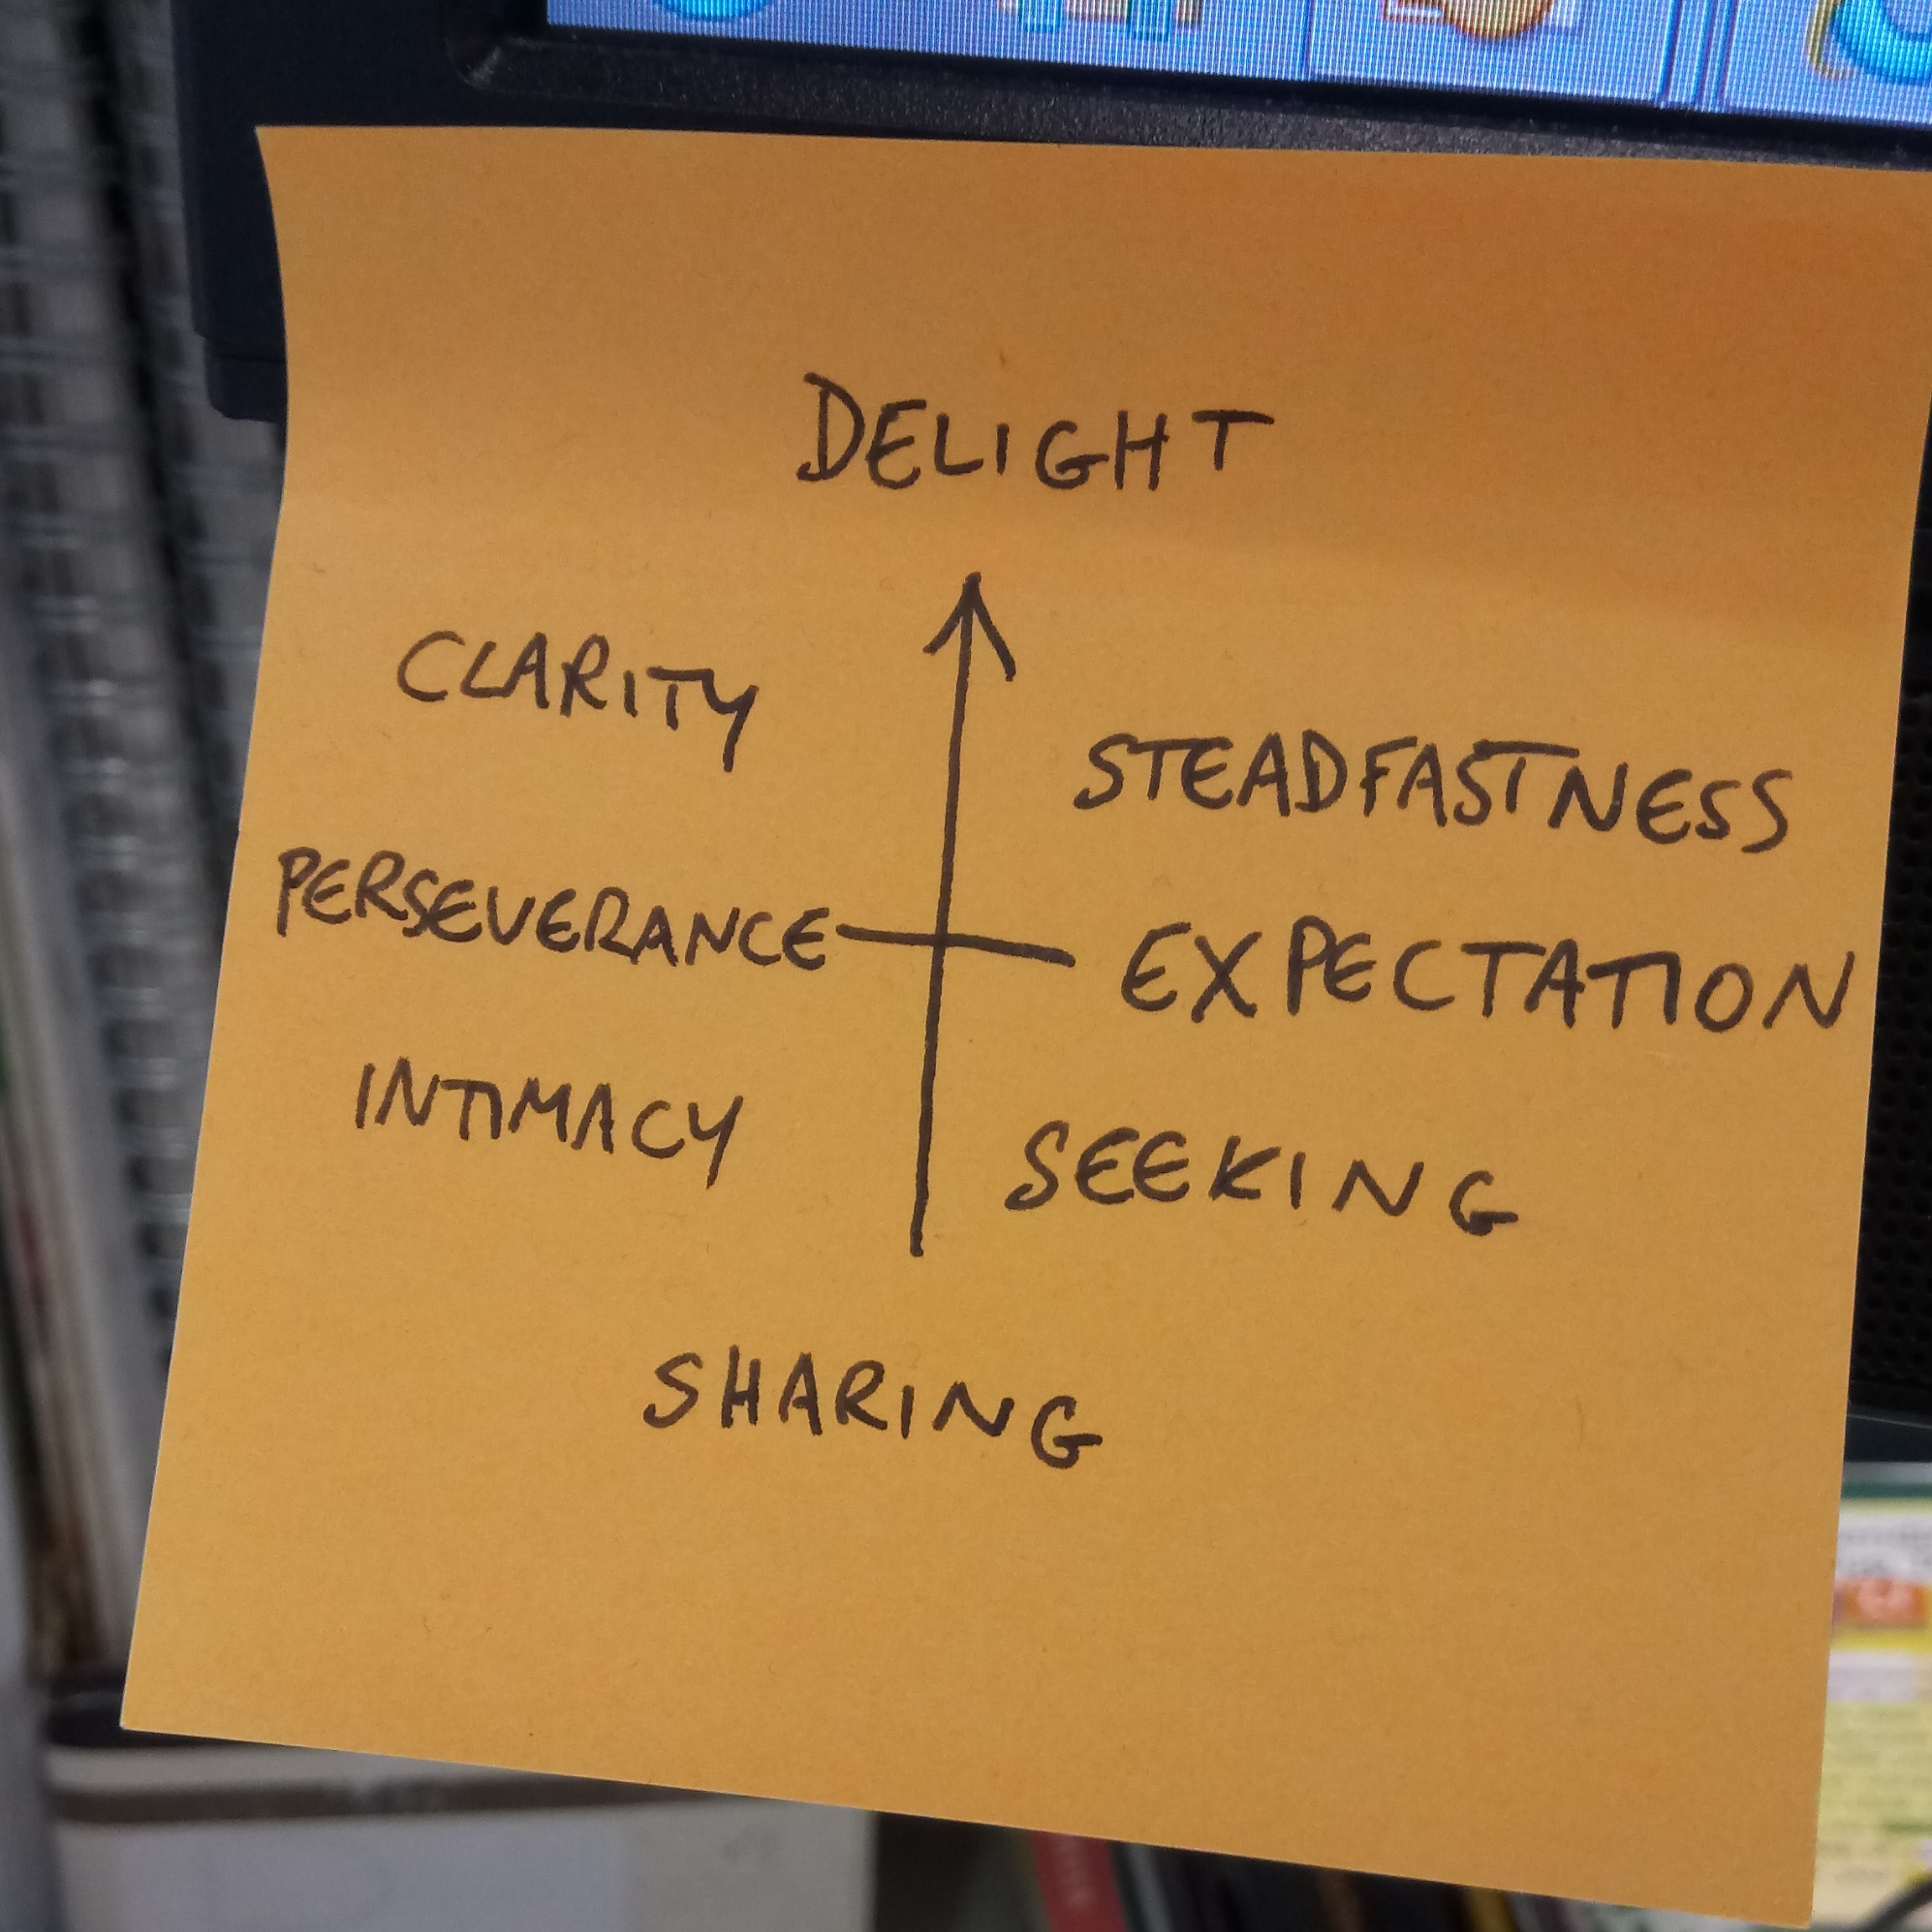 DELIGHT
CLARITY
STEADFASTNESS
PERSEVERANCE
EXPECTATION
INTIMACY
SEEKING
SHARING